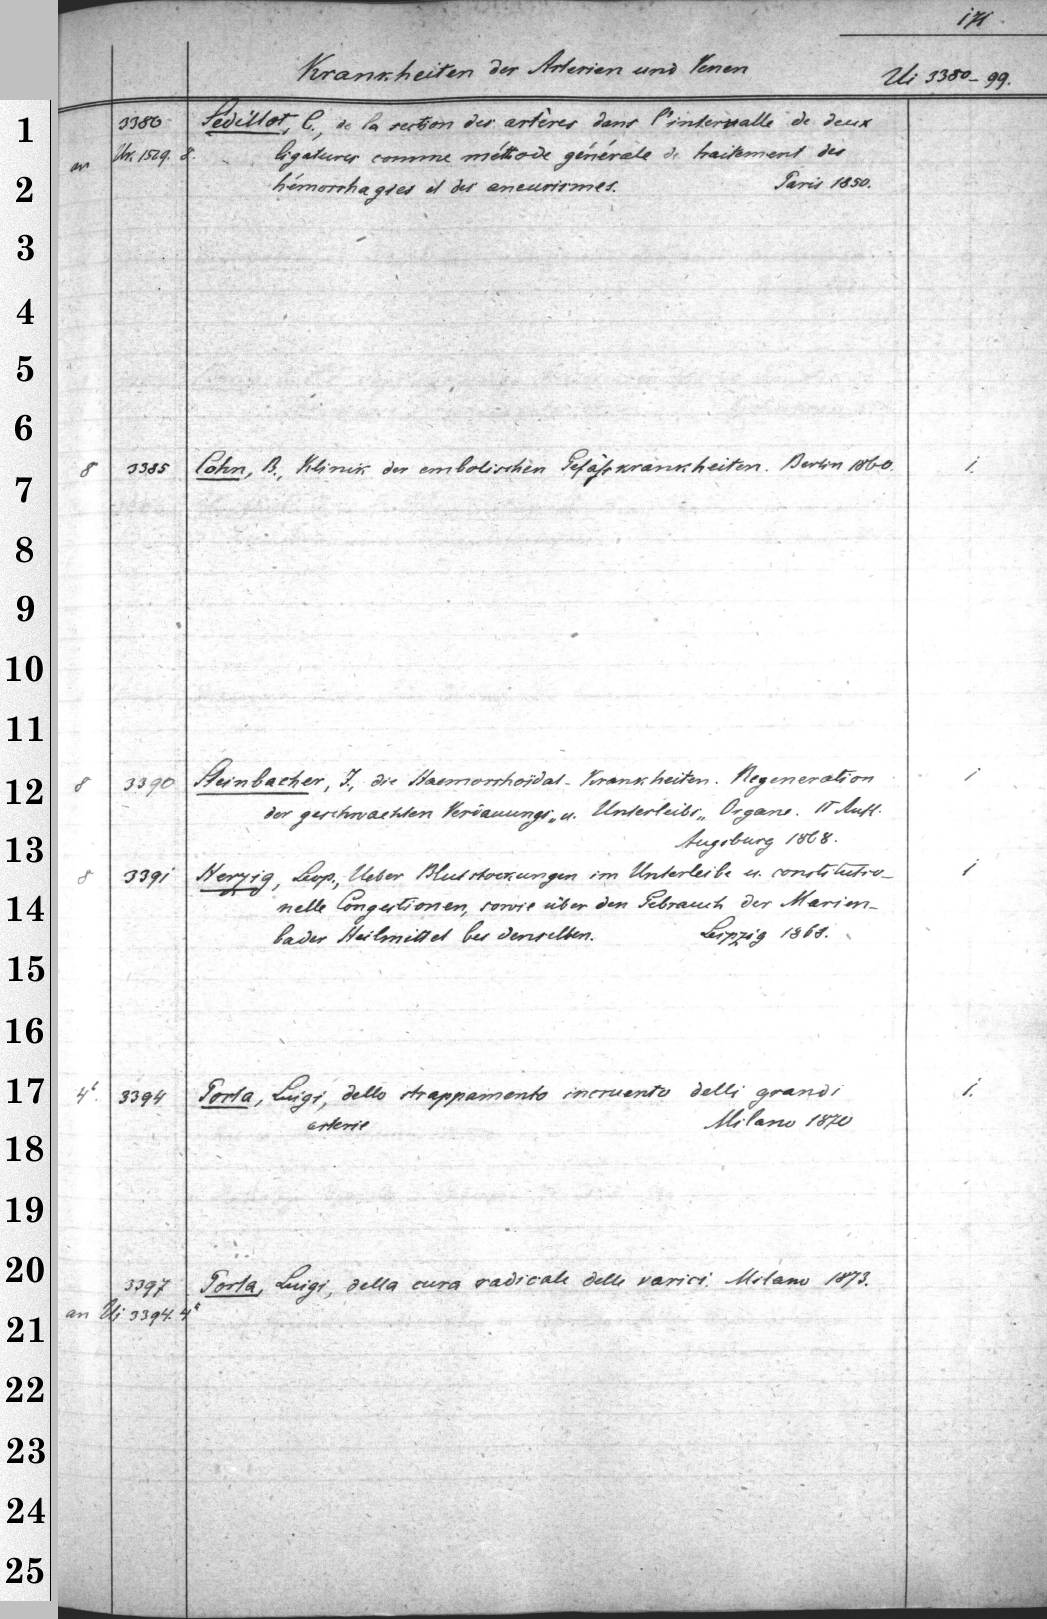 171.
Krankheiten der Arterien und Venen
Ui 3380-99.
1
3380 Sédillot, C., de la section des artères dans l'intervalle de deux
an Ur. 1529. 8. ligatures comme méthode générale de traitement des
2
hémorrhagies et des aneurismes. Paris 1850.
3
4
5
6
8 3385 Cohn, B., Klinik der embolischen Gefäßkrankheiten. Berlin 1860. 1.
7
8
9
10
11
8 3390 Steinbacher, J., die Haemorrhoidal-Krankheiten. Regeneration 1
12
der geschwächten Verdauungs„ u. Unterleibs„ Organe. II Aufl.
Augsburg 1868.
13
8 3391 Herzig, Leop., Ueber Blutstockungen im Unterleibe u. constitutio- 1
14
nelle Congestionen, sowie über den Gebrauch der Marien-
bader Heilmittel bei denselben. Leipzig 1868.
15
16
17
4t. 3394 Porta, Luigi, dello strappamento incruento delli grandi 1.
arterie Milano 1870
18
19
20
3397 Porta, Luigi, della cura radicale delle varici. Milano 1873.
an Ui 3394. 4t
21
22
23
24
25